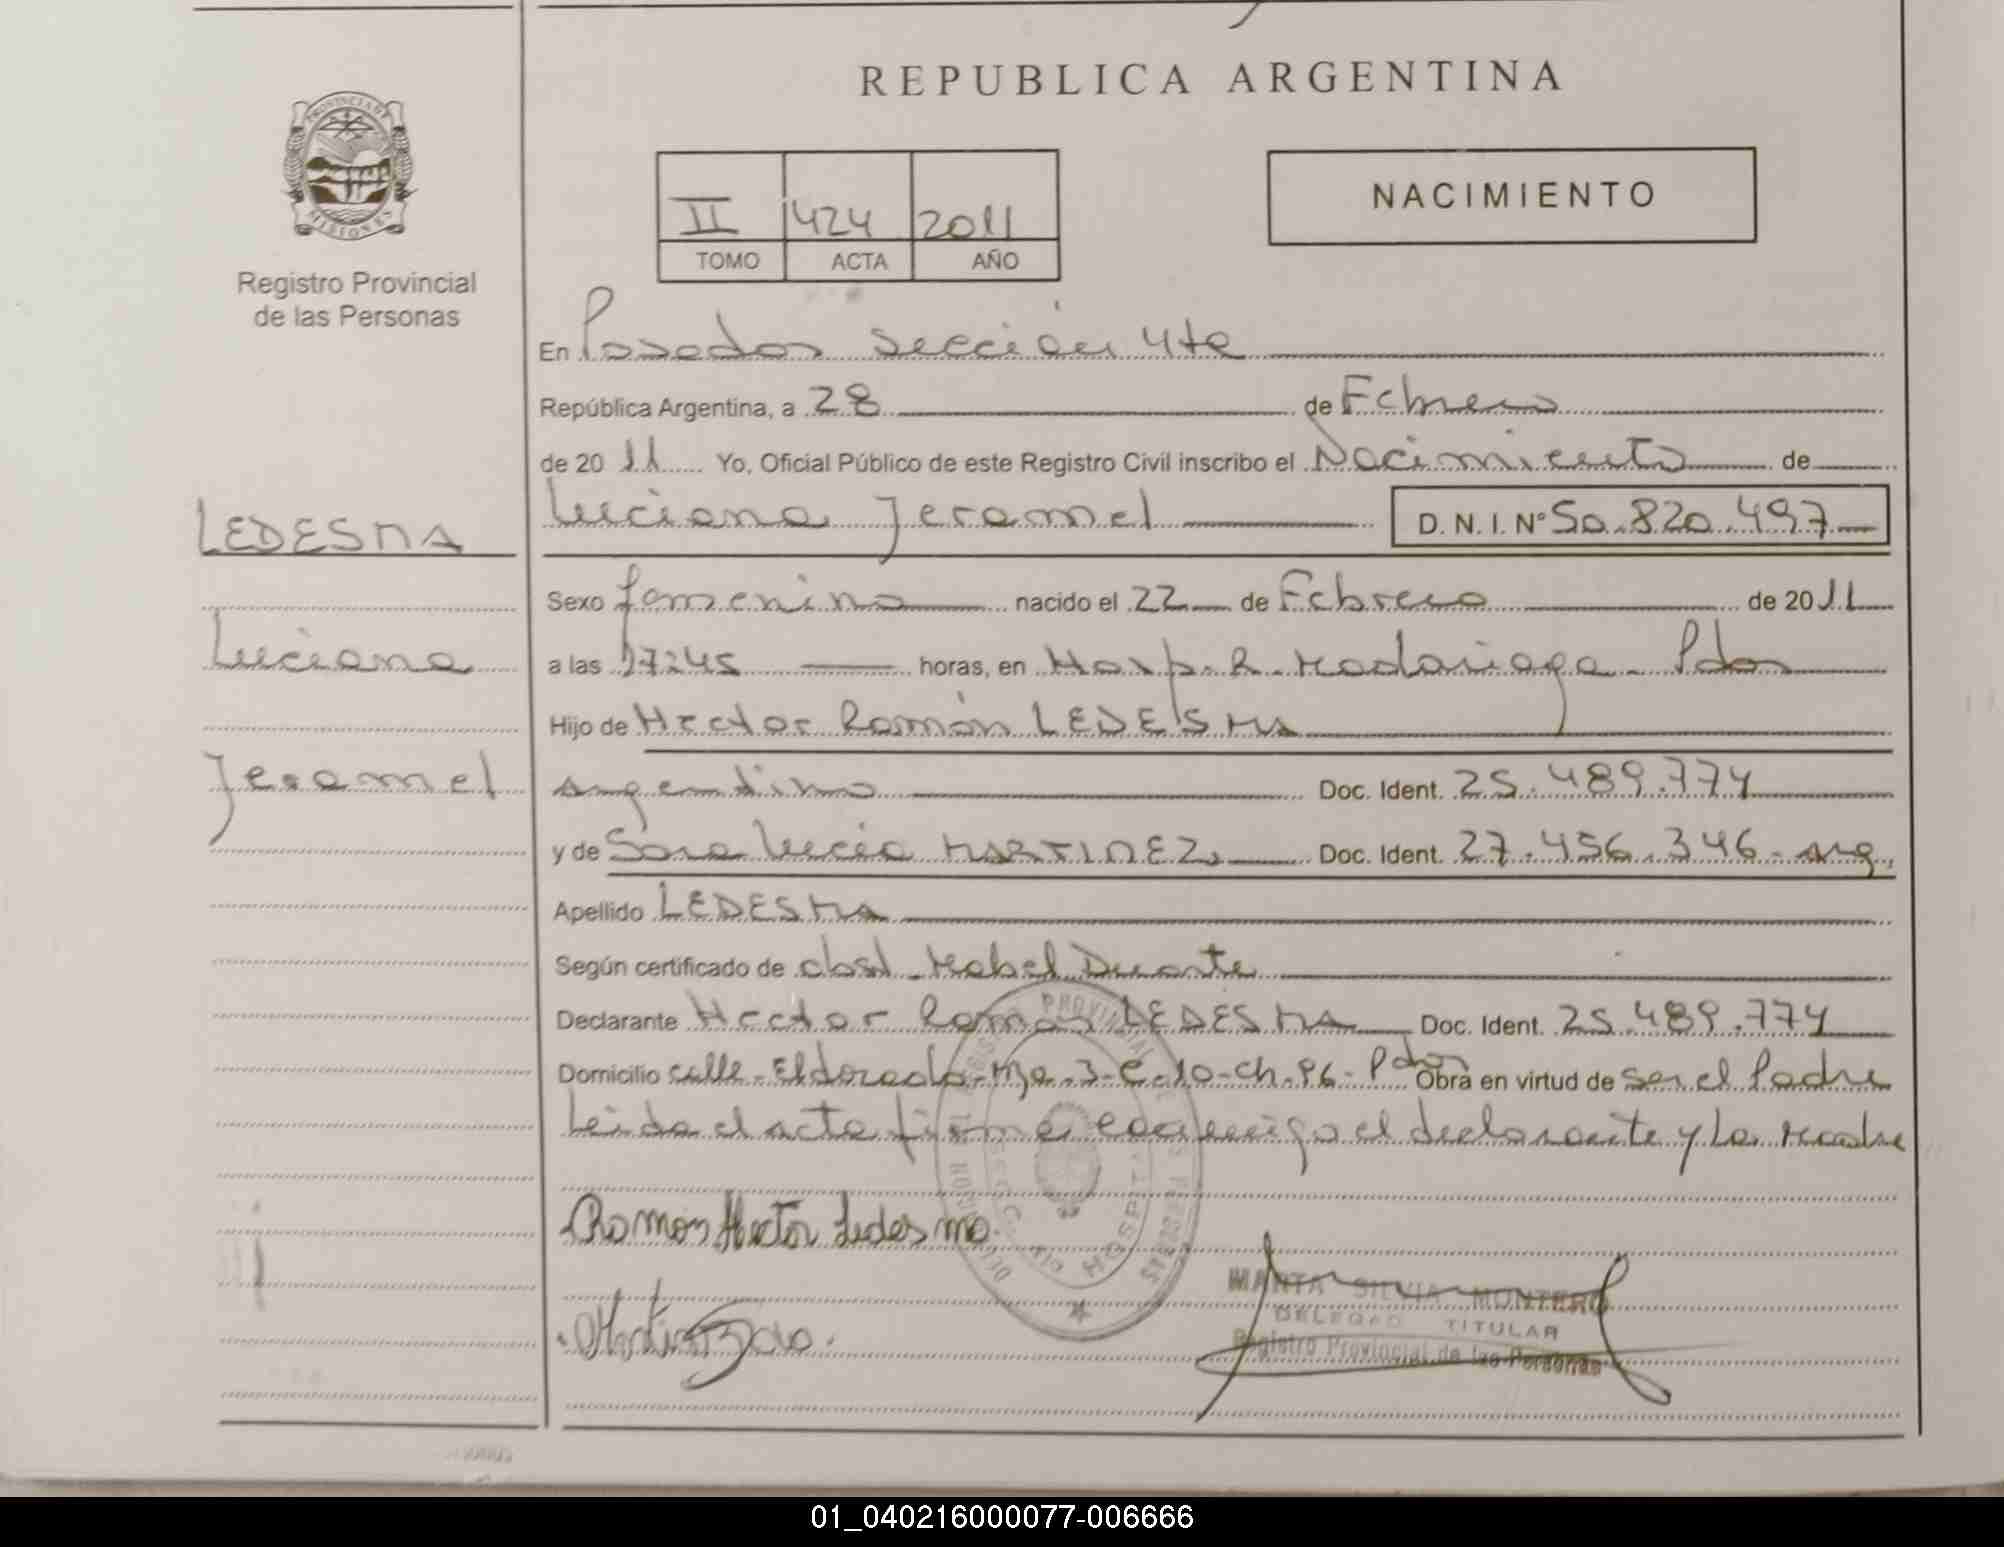 REPUBLICA ARGENTINA
PROVINCIA DE
MISIONES
Registro Provincial
de las Personas
II 424 2011
TOMO ACTA AÑO
NACIMIENTO
En Posadas sección 4ta
República Argentina, a 28 de Febrero
de 2011 Yo, Oficial Público de este Registro Civil inscribo el Nacimiento de
Luciana Jeramel D. N. I. Nº 50.820.497
LEDESMA
Luciana
Jeramel
Sexo femenino nacido el 22 de Febrero de 2011
a las 17:45 horas, en Hosp. R. Madariaga - Pdas
Hijo de Hector Ramón LEDESMA
argentino Doc. Ident. 25.489.774
y de Sara Lucia MARTINEZ Doc. Ident. 27.456.346 - arg.
Apellido LEDESMA
Según certificado de obst. Mabel Duarte
Declarante Hector Ramon LEDESMA Doc. Ident. 25.489.774
Domicilio calle - Eldorado - Mza. 3 - C - 10 - Ch. 96 - Pdas Obra en virtud de ser el Padre
Leida el acta firma conmigo el declarante y la madre
Ramon Hector Ledesma
MARTA SILVIA MONTERO
DELEGAD TITULAR
Registro Provincial de las Personas
01_040216000077-006666